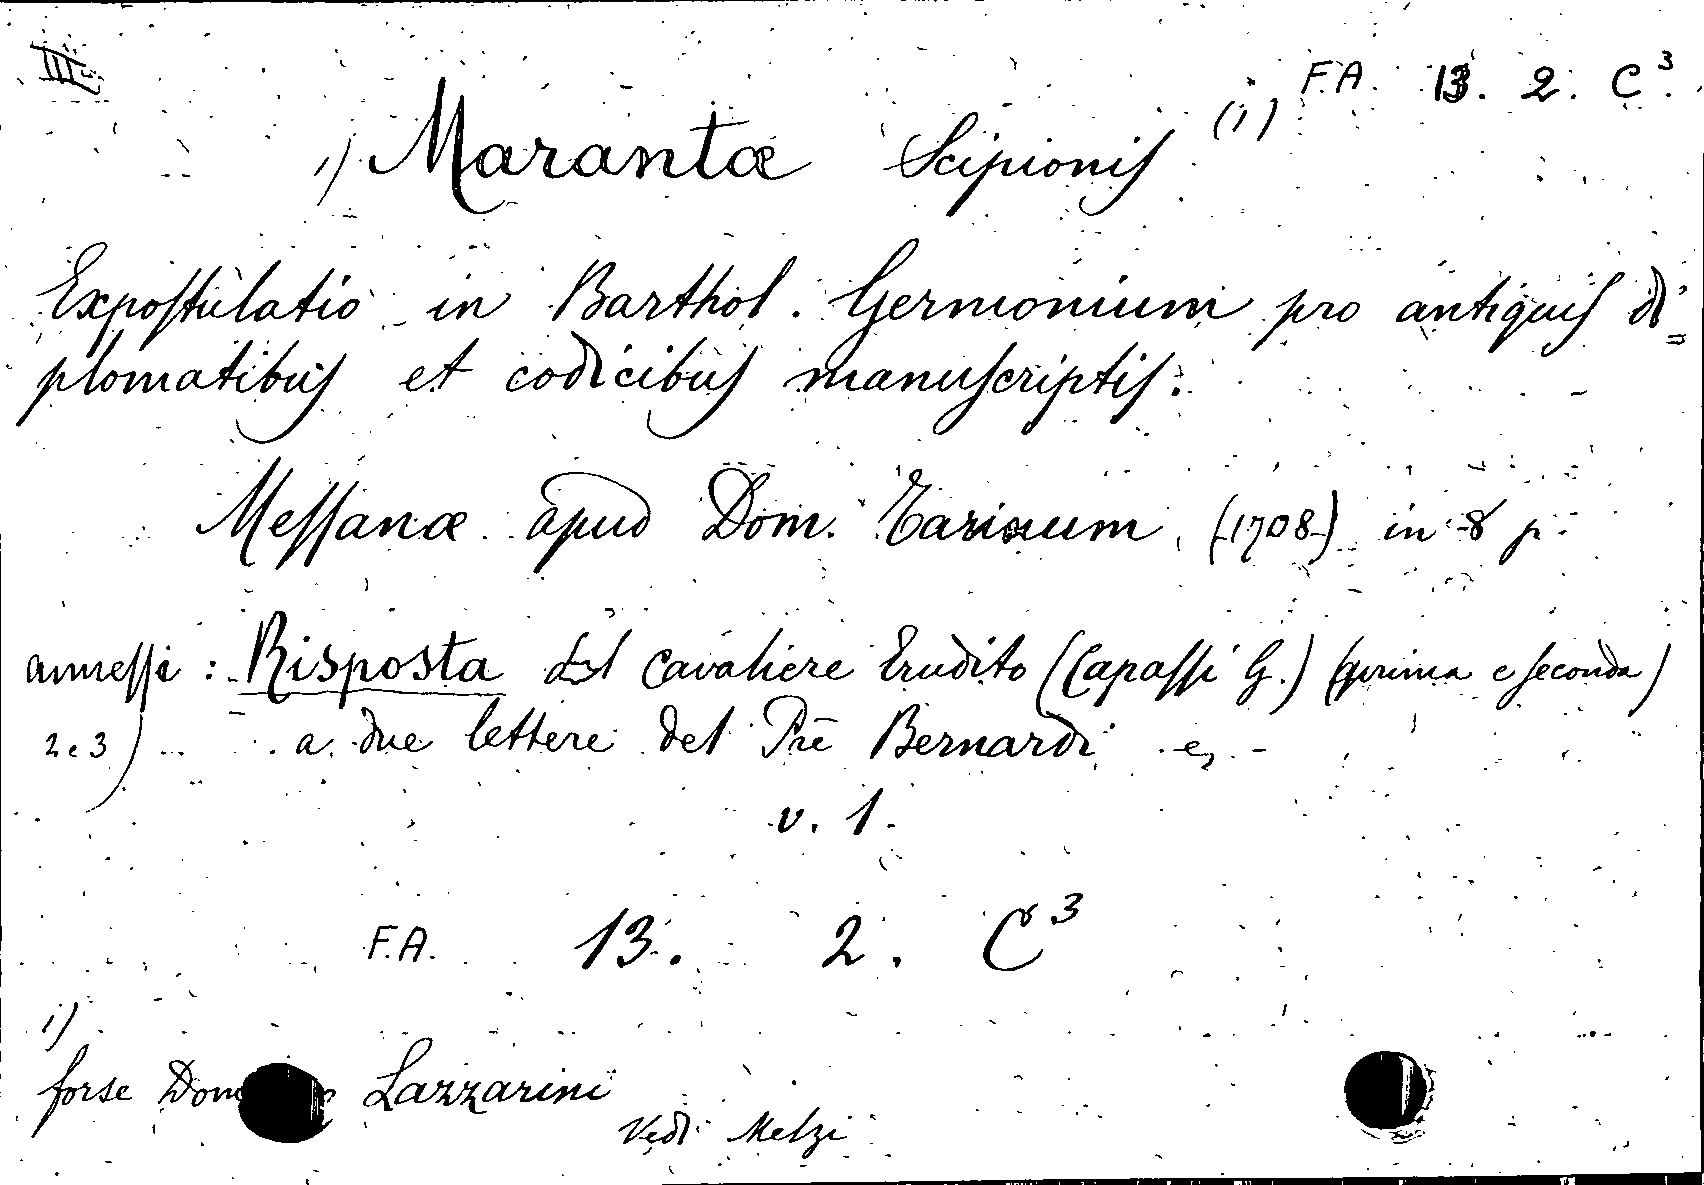 III F.A. 13. 2. C3.
1) Marantæ Scipionis (1)
Expostulatio in Barthol. Germonium pro antiquis di=
plomatibus et codicibus manuscriptis.
Messanæ apud Dom. Tarinum (1708) in 8 p.
annessi : Risposta del Cavaliere Erudito (Capassi G.) (prima e seconda)
2 e 3) a due lettere del Prē Bernardi e,
v. 1.
F.A. 13. 2. C3
1)
forse Lazzarini
Vedi Melzi